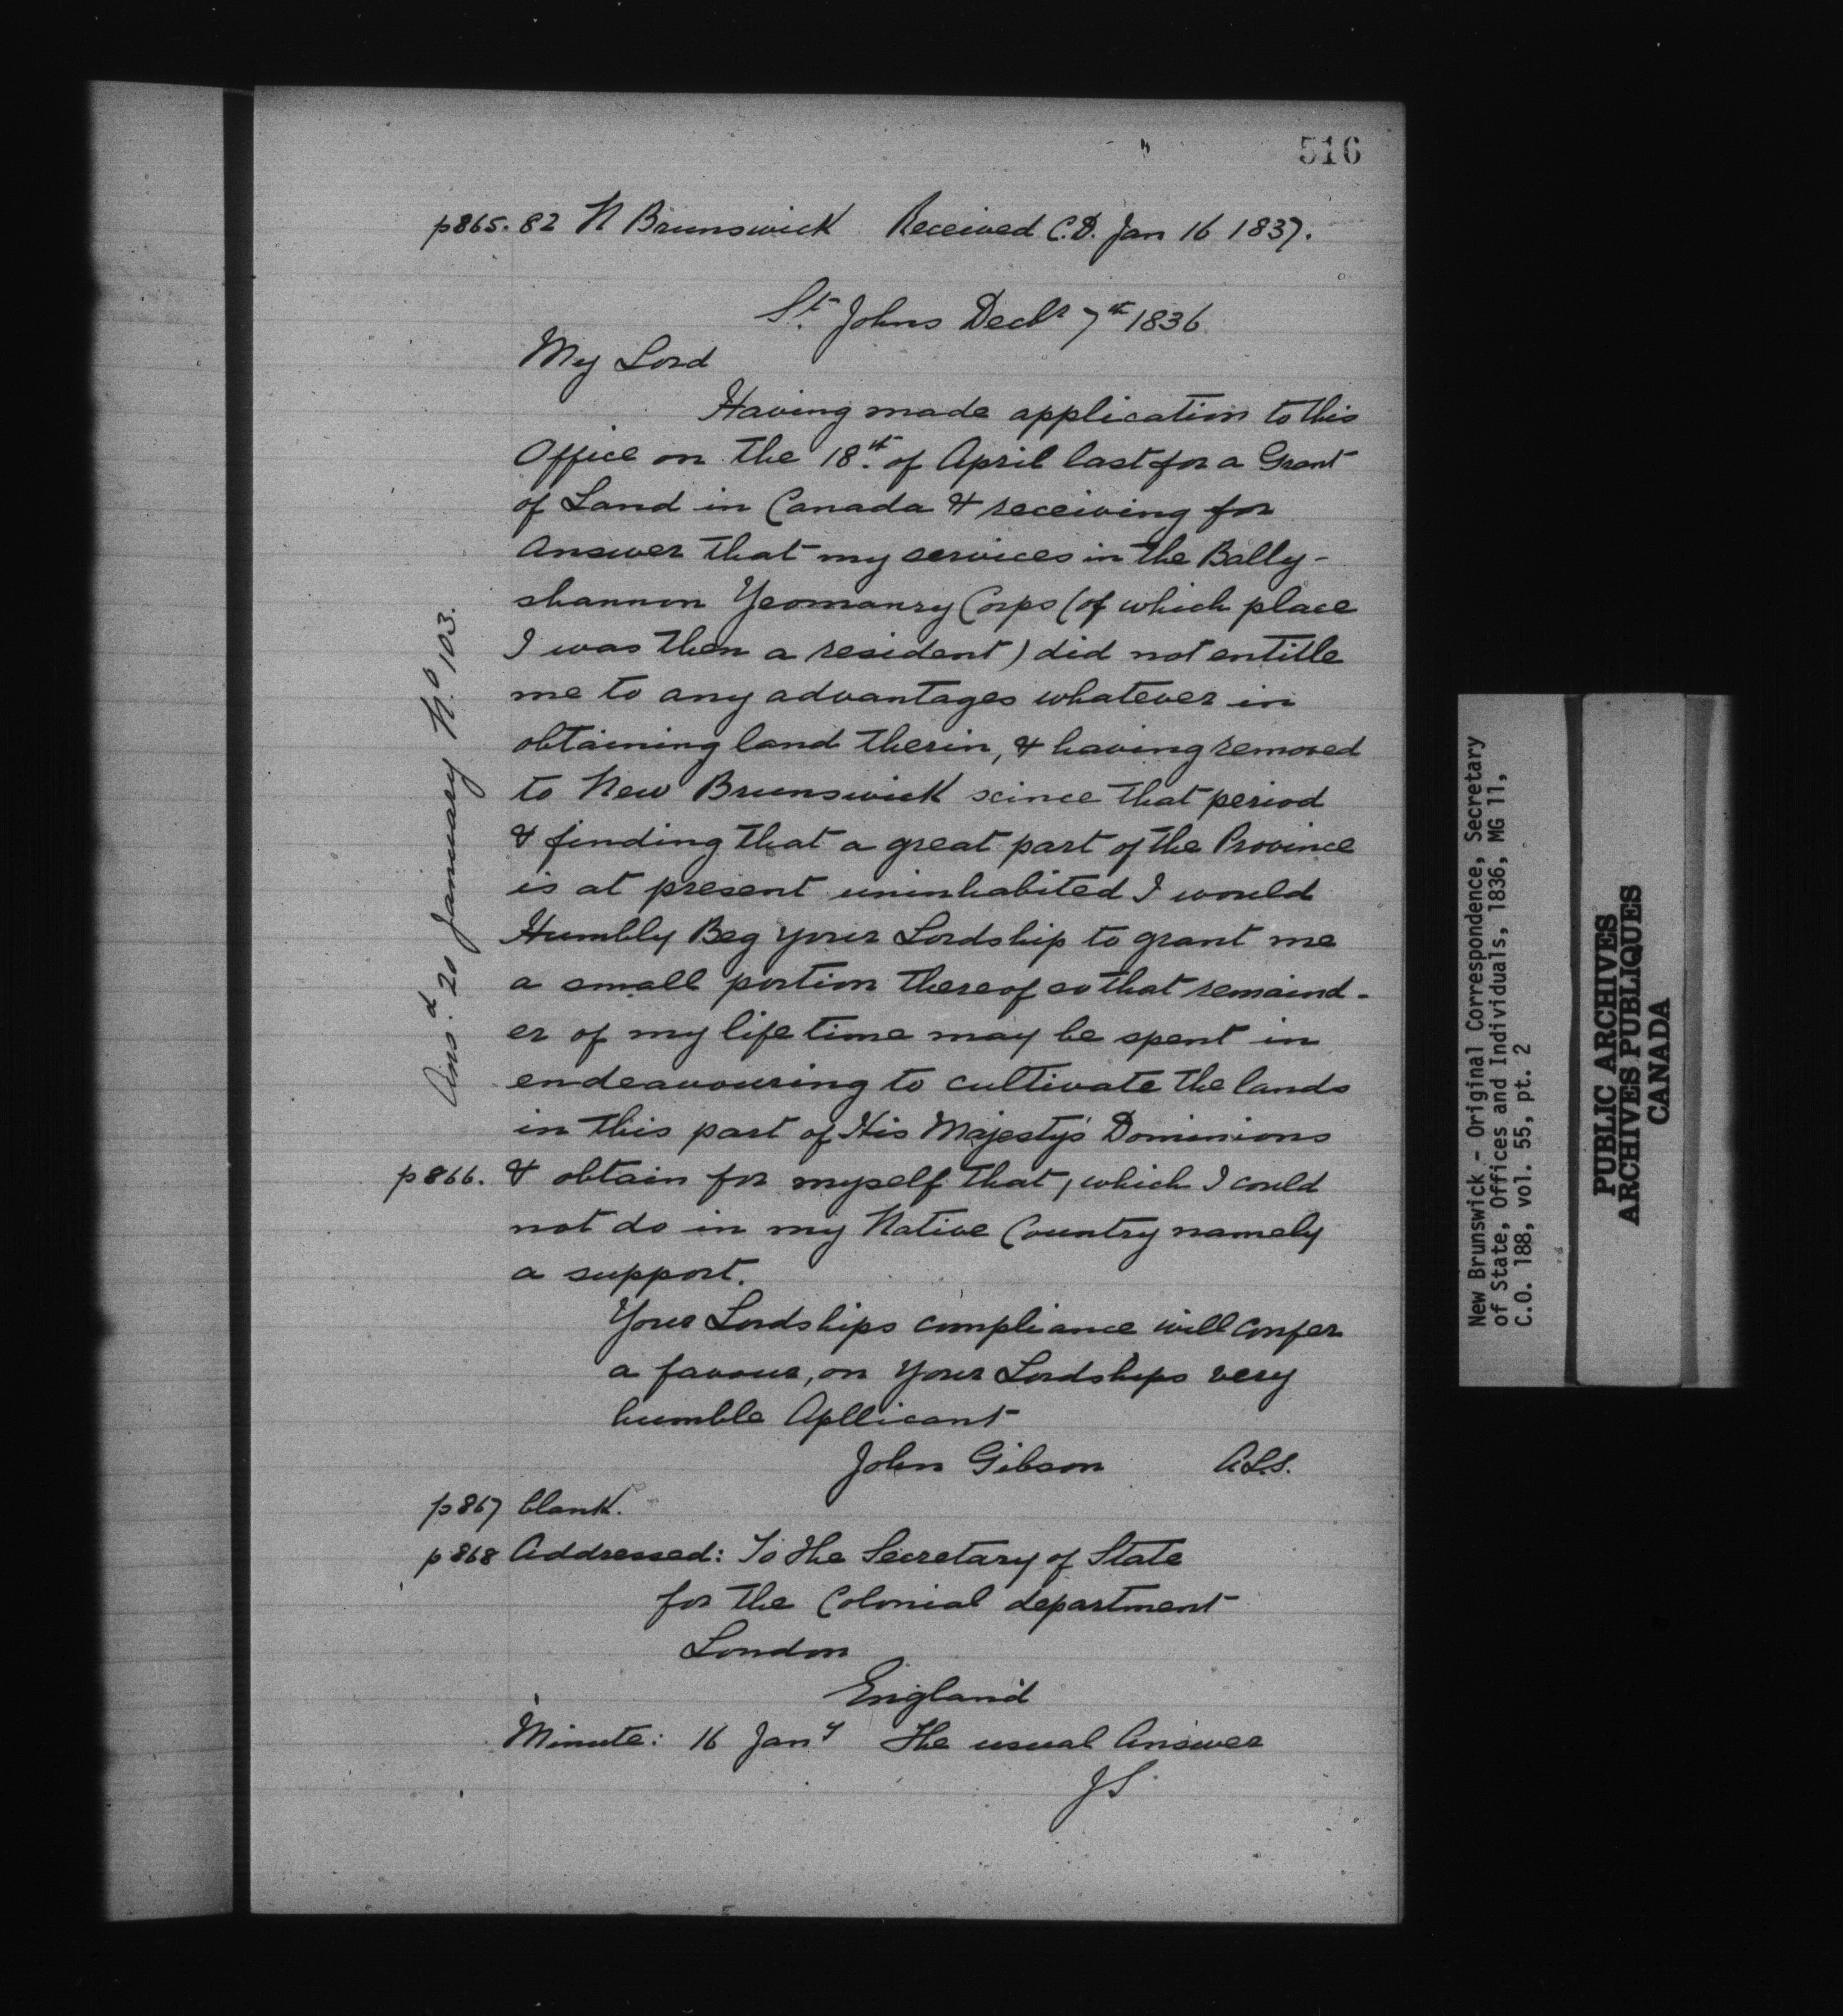 516
p865. 82 N Brunswick Received C.D. Jan 16 1837.
St. Johns Decbr 7th 1836
My Lord
Having made application to this
Office on the 18th. of April last for a Grant
of Land in Canada & receiving for
Answer that my services in the Bally-
shannon Yeomanry Corps (of which place
I was then a resident) did not entitle
me to any advantages whatever in
obtaining land therin, & having removed
to New Brunswick scince that period
& finding that a great part of the Province
is at present uninhabited I would
Humbly Beg your Lordship to grant me
a small portion thereof so that remaind-
er of my life time may be spent in
endeavouring to cultivate the lands
in this part of His Majesty's Dominions
p866. & obtain for myself that, which I could
not do in my Native Country namely
a support.
Your Lordships compliance will confer
a favour, on your Lordships very
humble Apllicant
John Gibson A.L.S.
p867 blank.
p868 Addressed: To the Secretary of State
for the Colonial department
London
England
Minute: 16 Jany The usual Answer
JS
Ans.d 20 January No. 103.
New Brunswick - Original Correspondence, Secretary
of State, Offices and Individuals, 1836, MG 11,
C.O. 188, vol. 55, pt. 2
PUBLIC ARCHIVES
ARCHIVES PUBLIQUES
CANADA